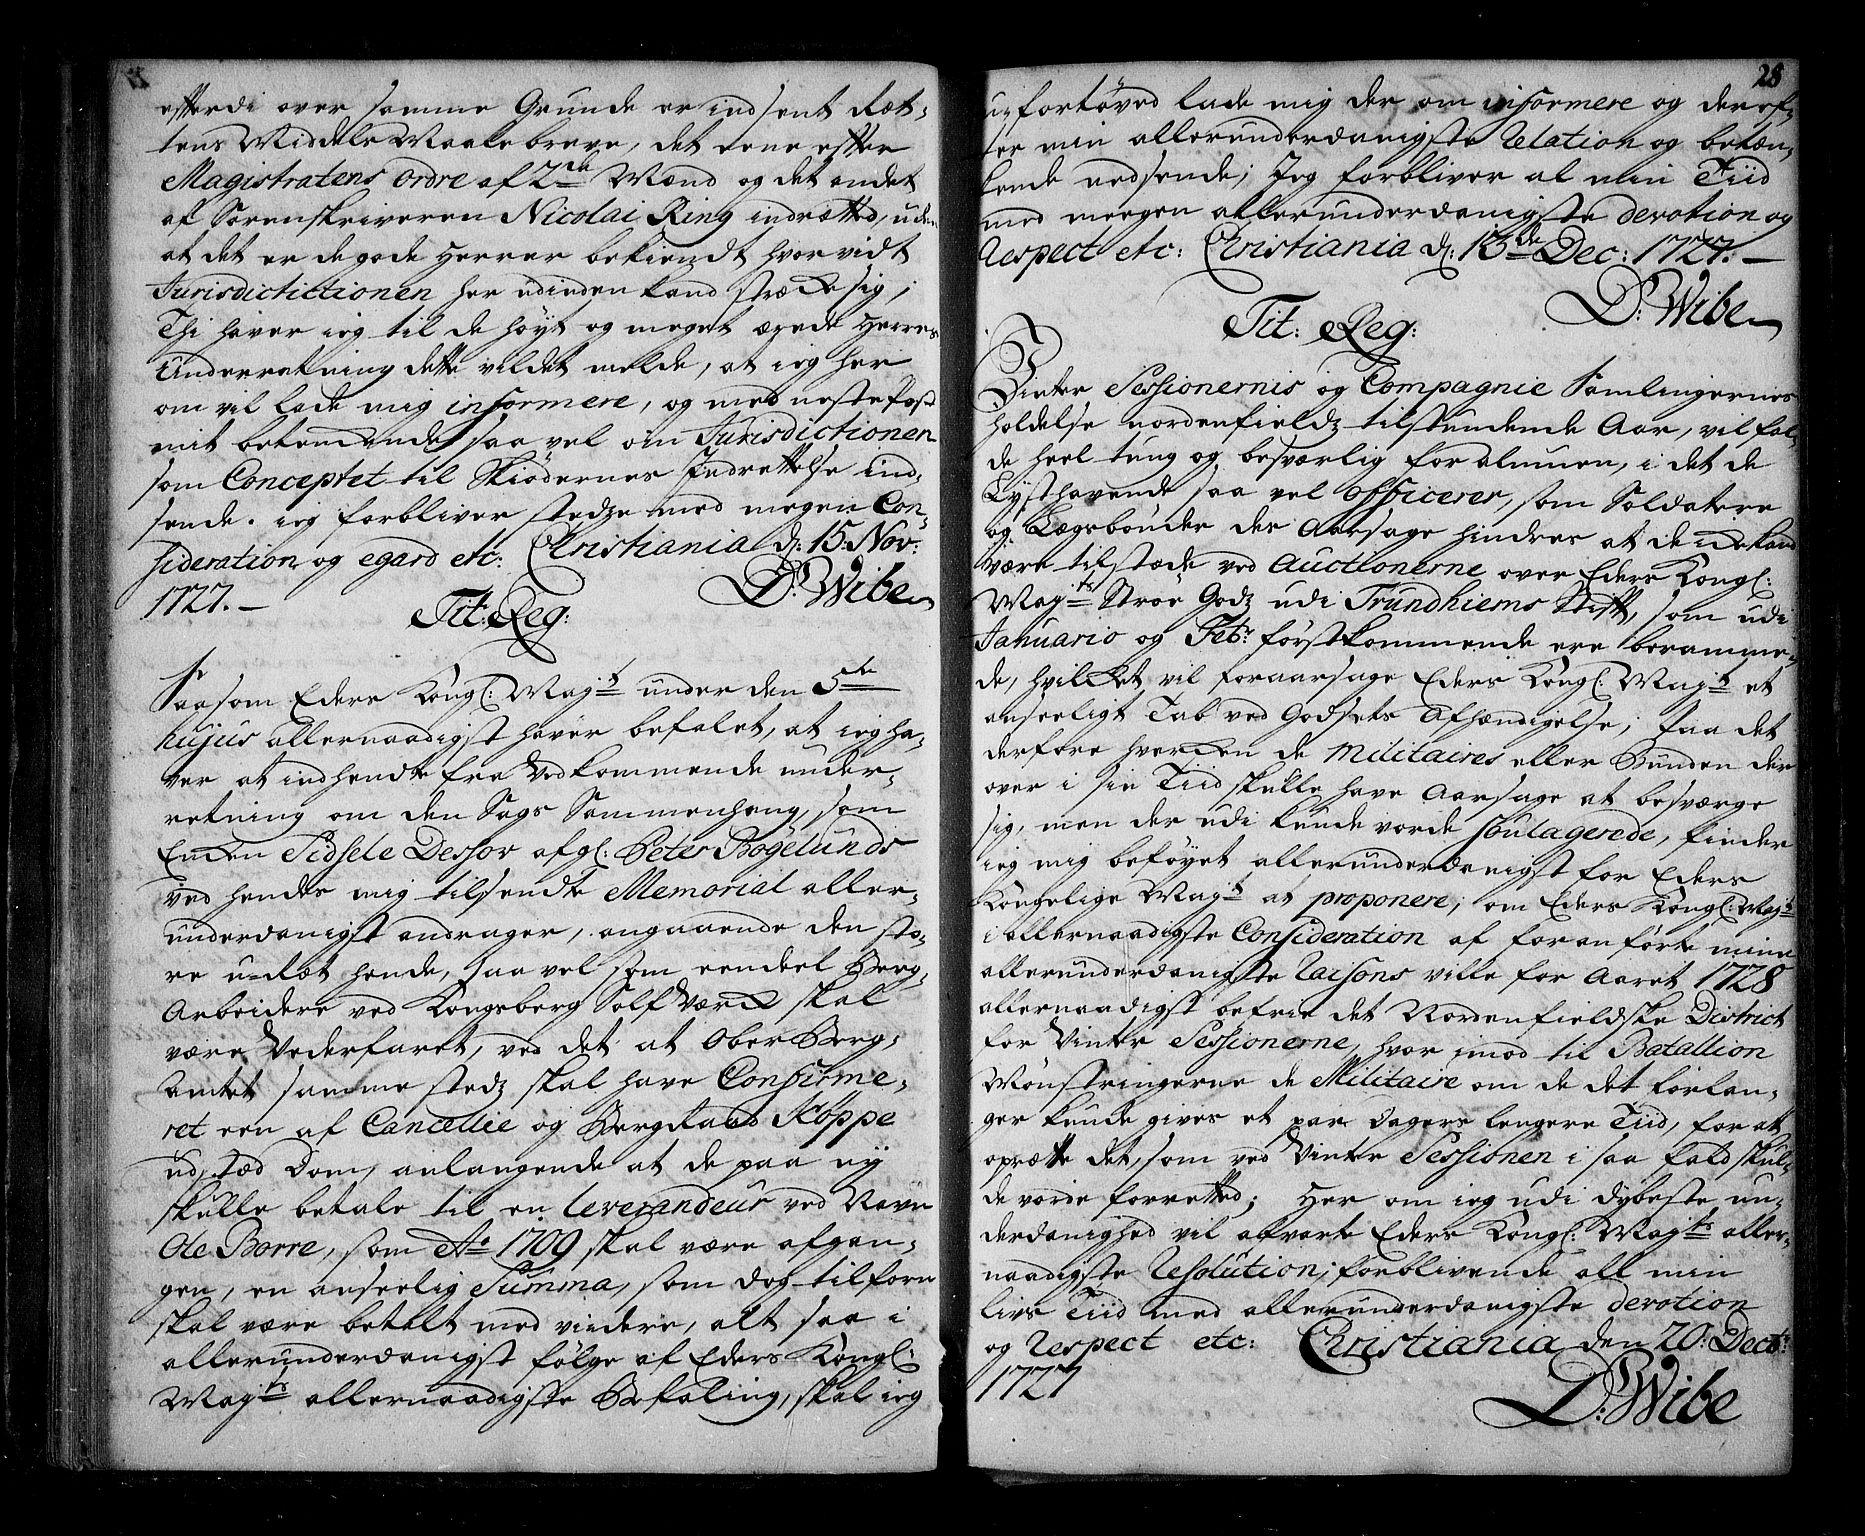 efterdi over samme Grunde er indsent Ret-
tens Middels Maalebreve, det eene efter
Magistratens Ordre af 2de Mænd og det andet
af Sorenskriveren Nicolai Ring indrætted, uden
at det er de gode Herrer bekiendt hvorvidt
Jurisdictictionen her udinden kand strække sig,
Thi haver ieg til de høyt og meget ærede Herrers
Underretning dette vildet melde, at ieg her
om vil lade mig informere, og med nestefost
mit betenkende saa vel om Jurisdictionen
som Conceptet til Skiødernes Indrettelse ind-
sende. ieg forbliver stedze med megen Con-
sideration og egard etc: Christiania d: 15: Nov:
1727. — D: Wibe
Tit: Reg:
Saasom Eders Kongl: Majts under den 5te
hujus allernaadigst haver befalet, at ieg ha-
ver at indhendte fra Vedkommende under-
retning om den Sags Sammenhæng, som
Enken Sidsele Dessov afgl: Peter Bøgelunds
ved hendes mig tilsendte Memorial aller-
underdanigst andrager, angaaende den sto-
re u-ræt hende, saa vel som eendeel Berg-
Arbeidere ved Kongsberg Sølf Værk skal
være Vederfaret, ved det at Ober Berg-
Amtet samme stedz skal have Confirme-
ret een af Cancellie og Bergraad Köppe
udstæd Dom, anlangende at de paa ny
skulle betale til en leverandeur ved Navn
Ole Borre, som Ao 1709 skal være afgan-
gen, en anseelig Summa, som dog tilforn
skal være betalt med videre, alt saa i
allerunderdanigst følge af Eders Kongl:
Majts allernaadigste Befaling, skal ieg
28
u-fortøved lade mig der om informere og deref-
ter min allerunderdanigste Relation og betæn-
kende nedsende; Jeg forbliver al min Tiid
med meegen allerunderdanigste devotion og
Respect etc: Christiania d: 13de Dec: 1727. —
D: Wibe
Tit: Reg:
Vinter Sessionernis og Compagnie Samlingernes
holdelse nordenfieldz tilstundende Aar, vil fal-
de heel tung og besværlig for almuen, i det de
Lysthavende saa vel Officerer, som Soldatere
og Lægsbønder der Aarsage hindres at de icke kand
være tilstæde ved Auctionerne over Eders Kongl:
Majts Strøe Godz udi Trundhiems Stift, som udi
Januario og Febr: førstkommende ere beramme-
de, hvilket vil foraarsage Eders Kongl: Majts et
anseeligt Tab ved Godsets Afhændigelse; Paa det
derfore hverken de Militaires eller Bunden der
over i sin Tiid skulle have Aarsage at besværge
sig, men der udi kunde vorde soulagerede, finder
ieg mig beføyet allerunderdanigst for Eders
Kongelige Majts at proponere; om Eders Kongl: Majts
i allernaadigste Consideration af foranførte mine
allerunderdanigste raisons ville for Aaret 1728
allernaadigst befrie det Nordenfieldske District
for Vinter Sessionerne, hvor imod til Batallion
Mønstringerne de Militaire om de det forlan-
ger kunde gives et par Dagers lengere Tiid, for at
oprætte det, som ved Vinter Sessionen i saa fald skul-
de vorde forretted; Her om ieg udi dybeste un-
derdanighed vil afvarte Eders Kongl: Majts aller-
naadigste Resolution; forblivende all min
livs Tiid med allerunderdanigste devotion
og Respect etc: Christiania den 20: Decbr:
1727
D: Wibe